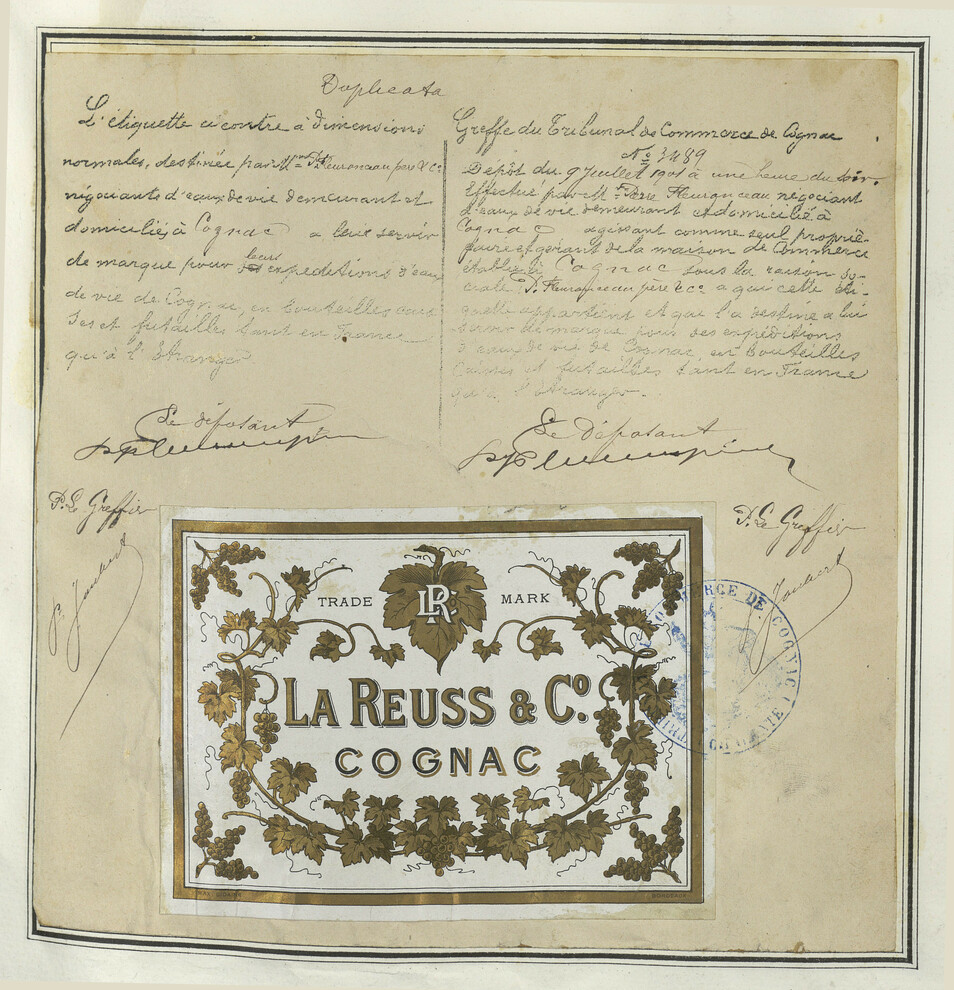 Duplicata
L'étiquette ci contre à dimensions
normales, destinée par M
négociants d'eaux de vie demeurant et
domiciliés à Cognac a leur servir
de marque pour leurs expeditions d'eaux
de vie de Cognac, en bouteilles cais
ses et futailles tant en France
qu'à l'étranger
Le déposant
P. Le Greffier
Joubert
Greffe du Tribunal de Commerce de Cognac
No 3489
Dépôt du 9 Juillet 1901 à une heure du soir.
Effectué par M. Pierre Fleuronceau négociant
d'eaux de vie demeurant et domicilié à
Cognac agissant comme seul proprié-
taire et gérant de la maison de Commerce
établie à Cognac sous la raison so-
ciale P. Fleuronceau père & Co a qui cette éti-
quette appartient et que l'a destiné a lui
servir de marque pour des expéditions
d'eaux de vie de Cognac, en bouteilles
Caisses et futailles tant en France
qu'à l'étranger.
Le Déposant
P. Le Greffier
Joubert
TRADE MARK
LR
LA REUSS & Co.
COGNAC
COMMERCE DE COGNAC